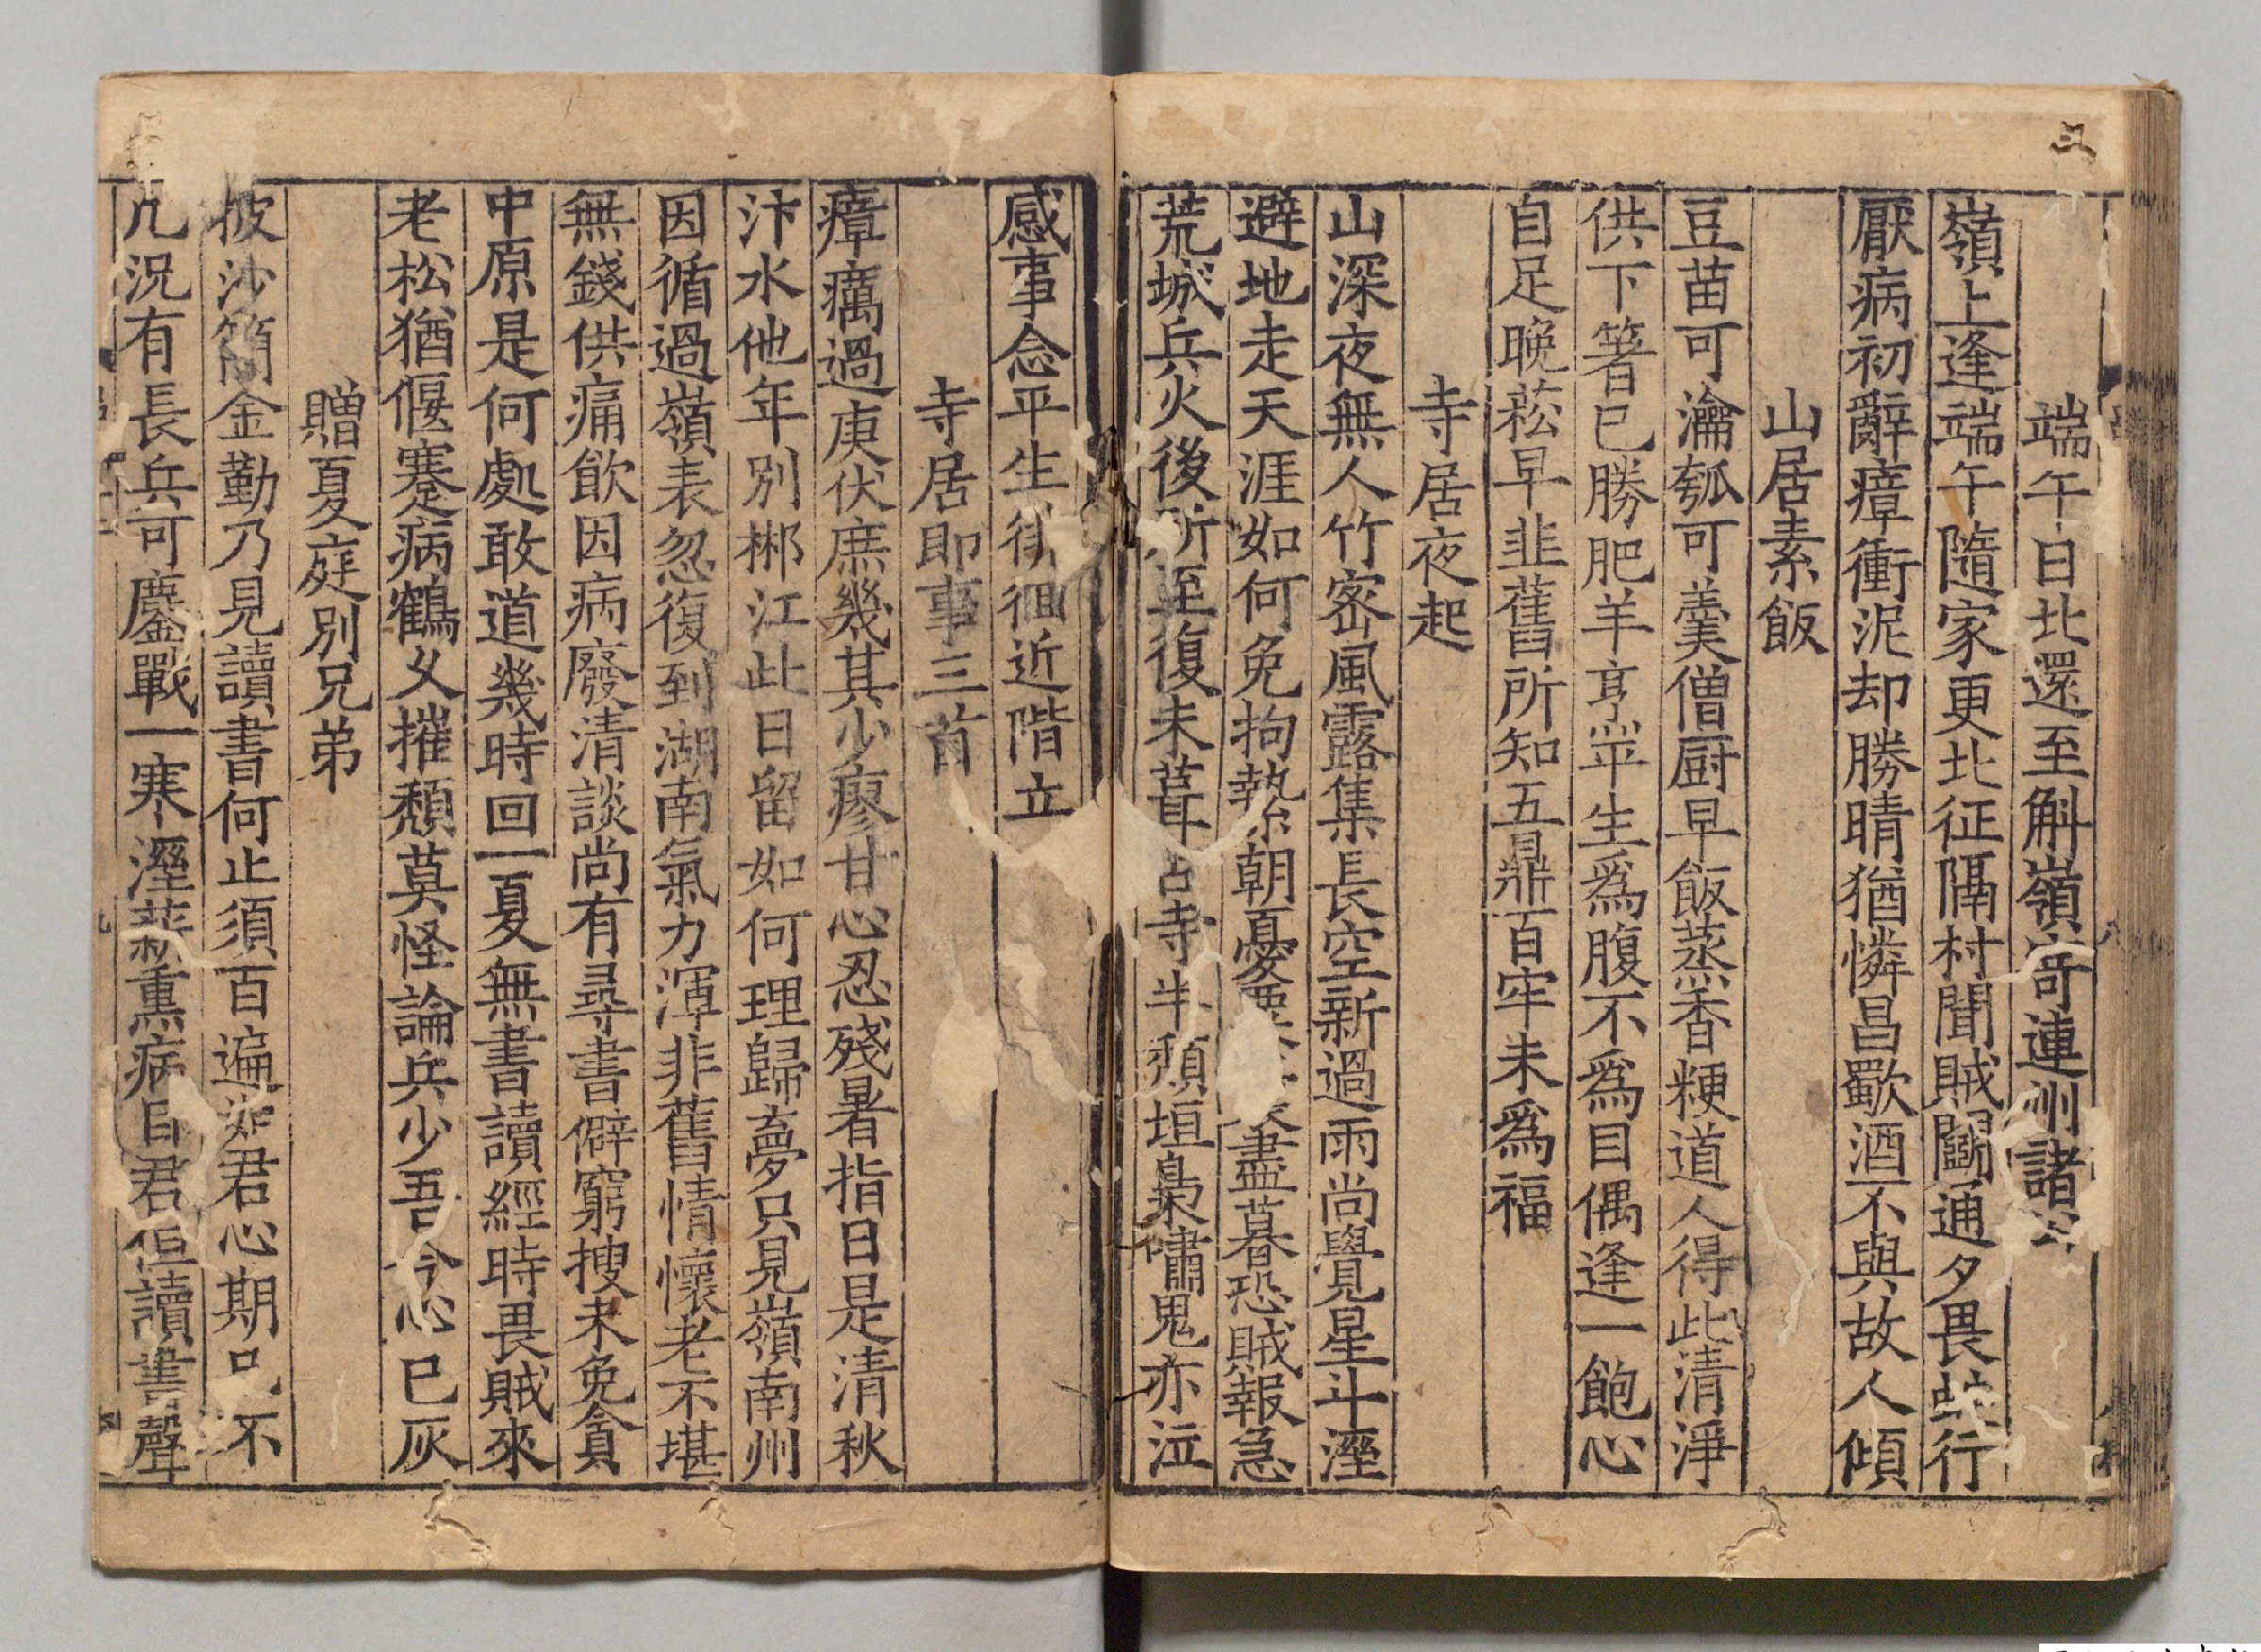 三
端午日北還至斛嶺寄連州諸
嶺上逢端午隨家更北征隔村聞賊鬬通夕畏蛇行
厭病初辭瘴衝泥却勝晴猶憐昌歜酒不與故人傾
山居素飯
豆苗可瀹瓠可羹僧厨早飯蒸香粳道人得此清淨
供下箸已勝肥羊亨平生爲腹不爲目偶逢一飽心
自足晚菘早韭舊所知五鼎百牢未爲福
寺居夜起
山深夜無人竹密風露集長空新過雨尚覺星斗溼
避地走天涯如何免拘縶朝憂盡暮恐賊報急
荒城兵火後所至復未葺古寺半頽垣梟嘯鬼亦泣
感事念平生徘徊近階立
寺居即事三首
瘴癘過庚伏庶幾其少瘳甘心忍殘暑指日是清秋
汴水他年別郴江此日留如何理歸夢只見嶺南州
因循過嶺表忽復到湖南氣力渾非舊情懷老不堪
無錢供痛飲因病廢清談尚有尋書僻窮搜未免貪
中原是何處敢道幾時回一夏無書讀經時畏賊來
老松猶偃蹇病鶴乆摧頽莫怪論兵少吾今心已灰
贈夏庭別兄弟
披沙簡金勤乃見讀書何止須百遍如君心期只不
凡況有長兵可鏖戰一寒溼薪熏病目君但讀書聲